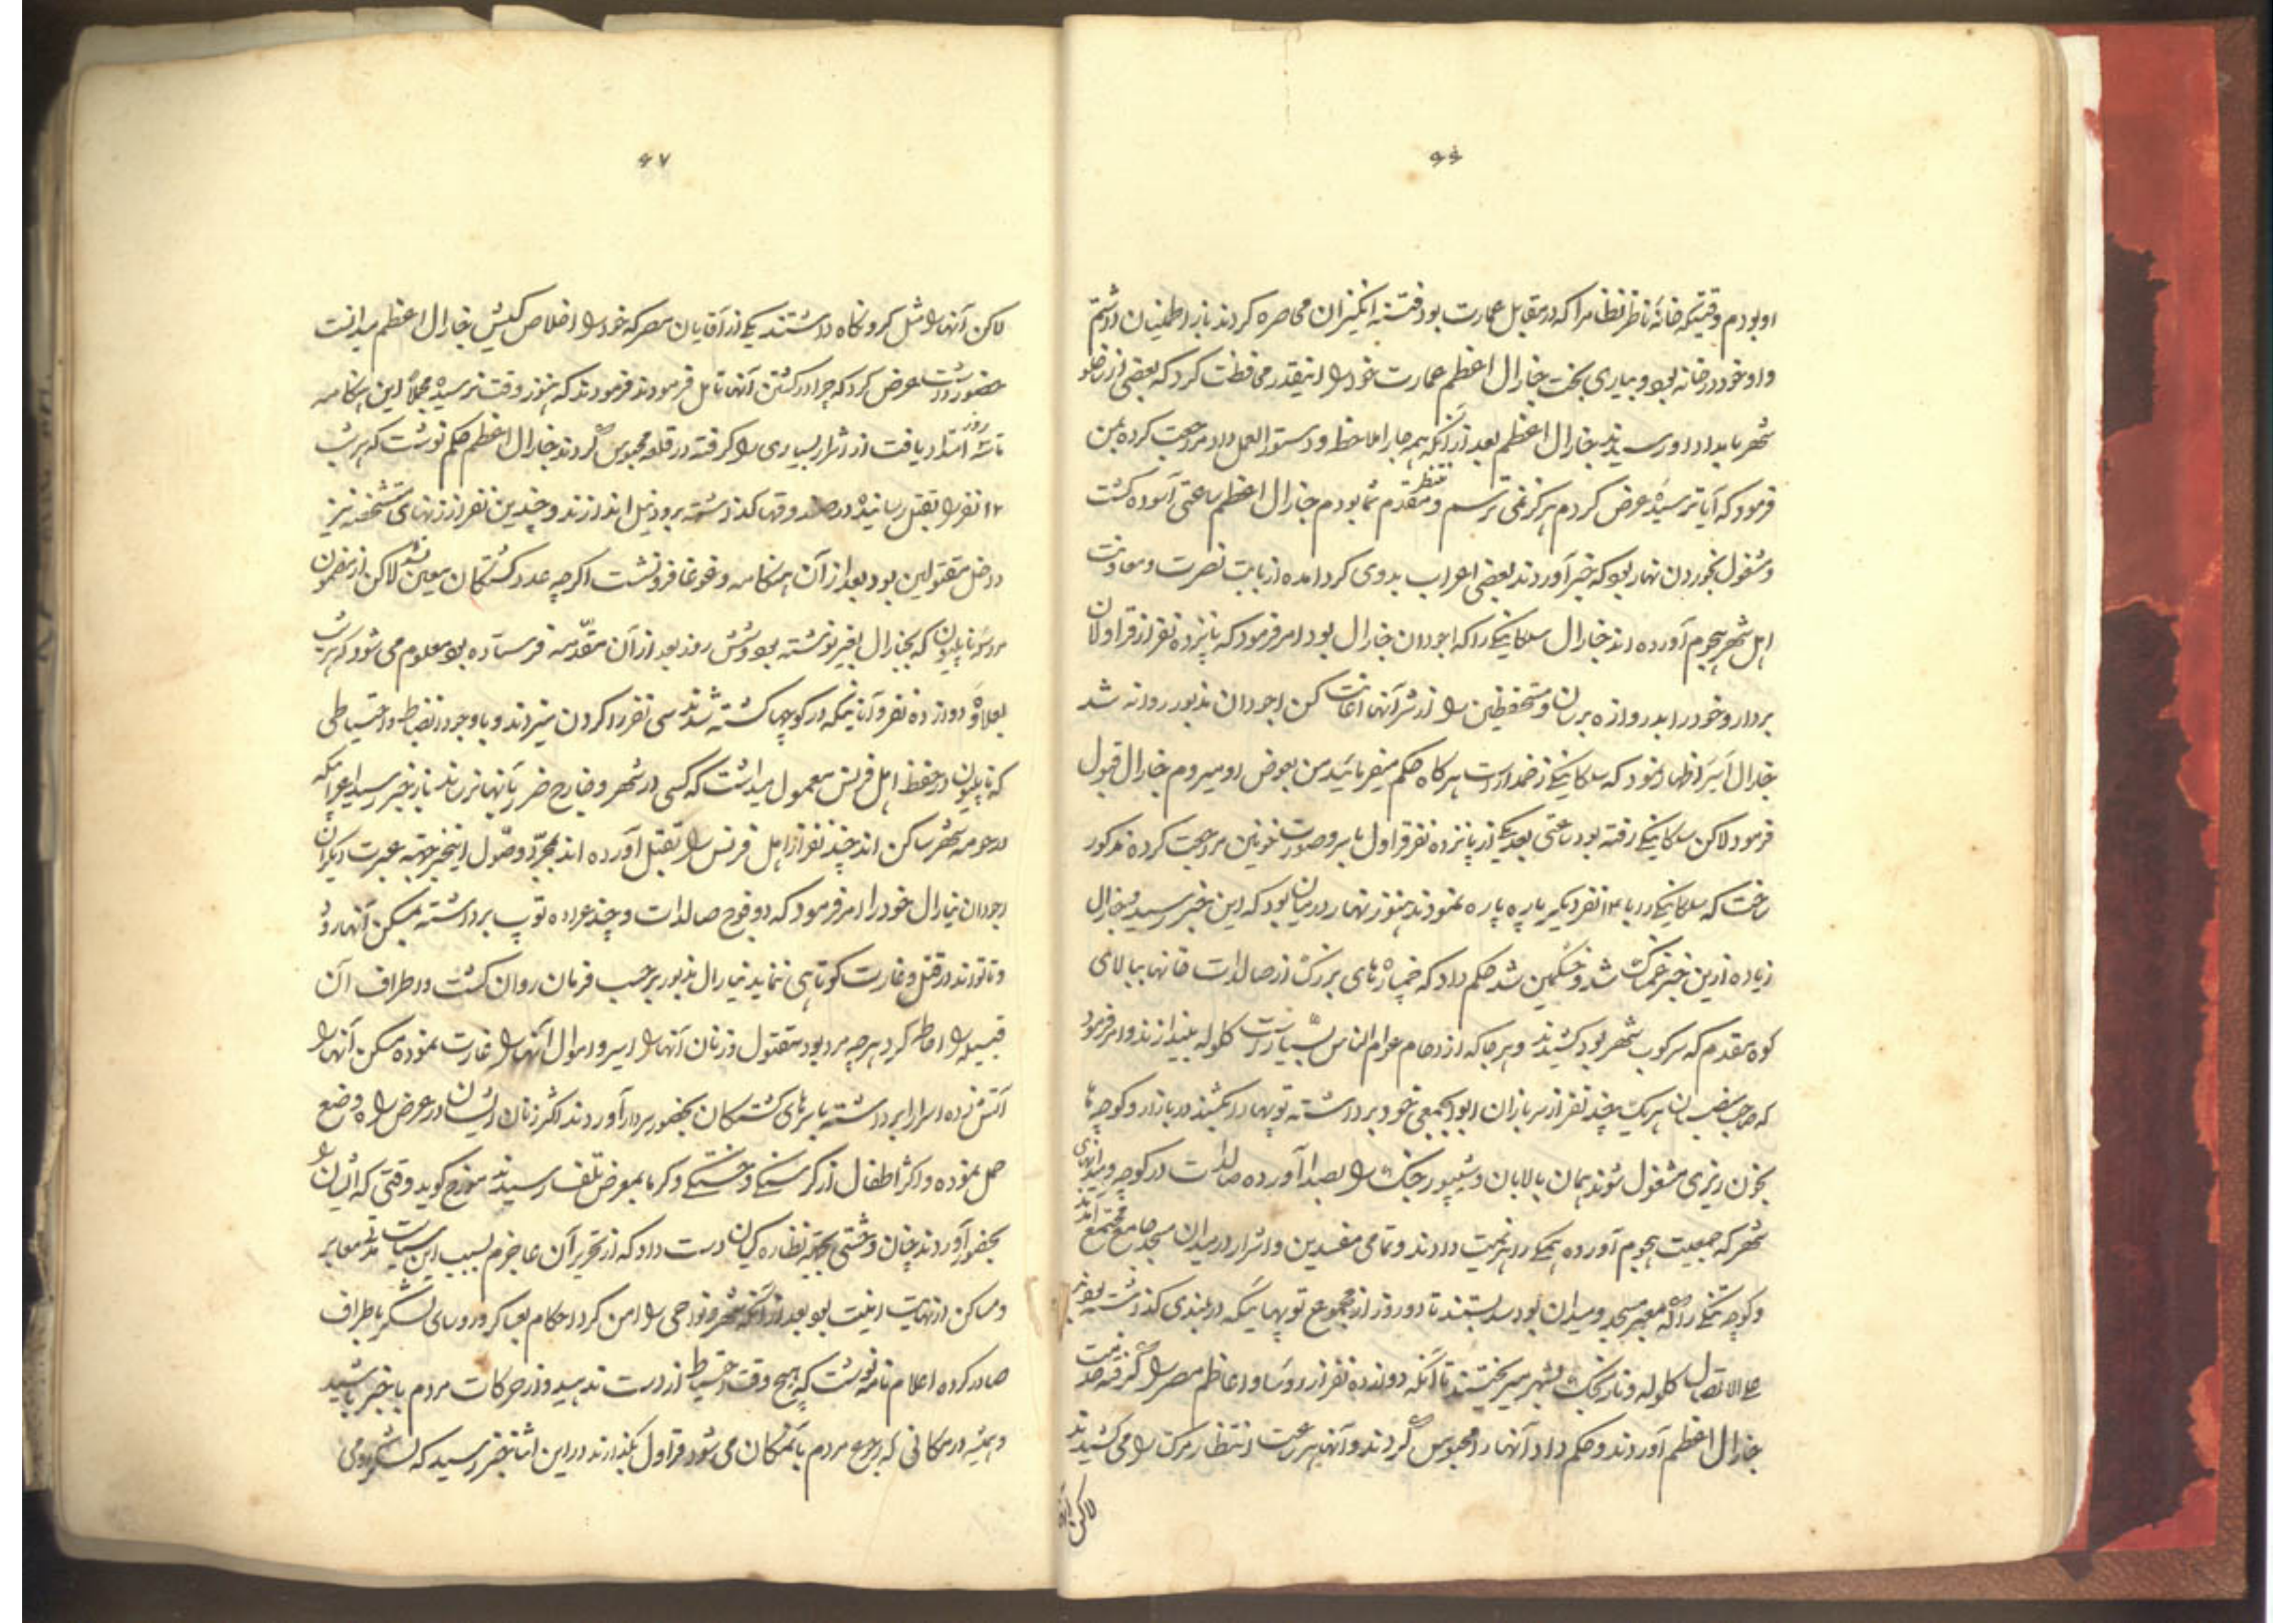 ۶۶
او بودم وقتیکه خانهٔ ناظر نظام را که در مقابل عمارت بود فتنه انگیزان محاصره کردند باز اطمینان داشتم
و او خود در خانه بود و بیاری بخت جنارال اعظم عمارت خود را اینقدر محافظت کرد که بعضی از
شهر بامداد او رسیدند جنارال اعظم بعد از آنکه همه جا را ملاحظه و دستورالعمل داد مراجعت کرده بمن
فرمود که آیا ترسیدهٔ عرض کردم هرگز نمی ترسم و منتظر مقدم شما بودم جنارال اعظم ساعتی آسوده گشت
و مشغول بخوردن نهار بود که خبر آوردند بعضی اعراب بدوی گرد آمده از بابت نصرت و معاونت
اهل شهر هجوم آورده اند جنارال سلکاسکی را که اجودان جنارال بود امر فرمود که پانزده نفر از قراولان
بردار و خود را بدروازه برسان و مستحفظین را از شر آنها اعانت کن اجودان مذبور روانه شد
جنارال اظهار نمود که سلکاسکی زخمدار است هرگاه حکم میفرمائید من بعوض او میروم جنارال قبول
فرمود لاکن سلکاسکی رفته بود ساعتی بعد یکی از پانزده نفر قراول با سر و صورت خونین مراجعت کرده مذکور
ساخت که سلکاسکی را با ۱۴ نفر دیگر پاره پاره نمودند هنوز نهار در میان بود که این خبر رسید جنارال
زیاده ازین خبر غمناک شد و خشمگین شد حکم داد که خمپاره های بزرگ از صالدات خانها ببالای
کوه مقدم که سرکوب شهر بود کشیدند و هر جا که ازدحام عوام الناس بسیار است گلوله بیندازند و امر فرمود
که صاحب منصبان هر یک چند نفر از سربازان ابوابجمعی خود برداشته توپها را کشیده در بازار و کوچه ها
بخون ریزی مشغول شوند همان بالابان و شیپور جنگ را بصدا آورده صالدات در کوچه و میدانهای
شهر که جمعیت هجوم آورده همگی را هزیمت دادند و تمامی مفسدین و اشرار در میدان مسجد جامع مجتمع آمدند
و کوچه تنگی را که معبر مسجد و میدان بود سد بستند تا دو روز از مجموع توپهائیکه در بلندی گذاشته بودند
علی الاتصال گلوله و نارنجک بشهر میریختند تا آنکه دوازده نفر از رؤسا و اعاظم مصر را گرفته بخدمت
جنارال اعظم آوردند و حکم داد آنها را محبوس کردند و آنها هر ساعت انتظار مرگ را می کشیدند
لاکن آنها
۶۷
لاکن آنها را مثل گرو نگاه داشتند یکی از آقایان مصر که خود را اخلاص کیش جنارال اعظم میدانست
حضور داشت عرض کرد که چرا در کشتن آنها تامل فرمودند فرمودند که هنوز وقت نرسیده مجملاً این هنگامه
تا سه روز امتداد یافت از اشرار بسیاری را گرفته در قلعه محبوس کردند جنارال اعظم حکم نوشت که هر شب
۱۲ نفر را بقتل رسانیده در صندوقها گذاشته برود نیل اندازند و چندین نفر از زنهای مشخصه نیز
داخل مقتولین بود بعد از آن هنگامه و غوغا فرو نشست اگرچه عدد کشتگان معین نشد لاکن از مضمون
مراسله ناپلیون که بجنارال نوشته بود و شش روز بعد از آن مقدمه فرستاده بود معلوم می شود که هر شب
بعلاوهٔ دوازده نفر و آنانیکه در کوچها کشته شدند سی نفر را گردن میزدند و با وجود انضباط و احتیاطی
که ناپلیون در حفظ اهل فرنس معمول میداشت که کسی در شهر و خارج ضرر بآنها نرساند باز خبر رسید اعرابیکه
در حومه شهر ساکن اند چند نفر از اهل فرنس را بقتل آورده اند بمجرد وصول اینخبر جهتِ عبرت دیگران
اجودان نیارال خود را امر فرمود که دو فوج صالدات و چند عراده توپ برداشته بمسکن آنها رود
و تا تواند در قتل و غارت کوتاهی ننماید نیارال مذبور بر حسب فرمان روان گشت و اطراف آن
قبیله را احاطه کرد هرچه مرد بود مقتول و زنان آنها را اسیر و اموال آنها را غارت نموده مسکن آنها را
آتش زده اسرا را برداشته با سرهای کشتگان بحضور سردار آوردند اکثر زنان ایشان در عرض راه وضع
حمل نموده و اکثر اطفال از گرسنگی و خستگی و گرما بمعرض تلف رسیدند مورخ گوید وقتی که ایشان را
بحضور آوردند چنان وحشتی بجهة نظاره گیان دست داد که از تحریر آن عاجزم بسبب این سیاست مدتی معابر
و مساکن از نهایت امنیت بود بعد از آنکه شهر و نواحی را امن کرد احکام بعساکر و رؤسای لشکر باطراف
صادر کرده اعلام نامه نوشت که هیچ وقت احتیاط از دست ندهید و از حرکات مردم باخبر باشید
و همیشه در مکانی که رجوع مردم بآنمکان می شود قراول بگذارند در این اثنا خبر رسید که لشکر رومی